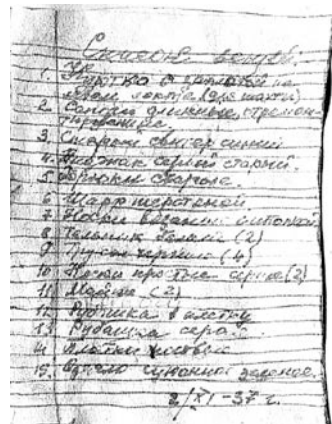 Список вещей.
1. Куртка с заплатой на
левом локте (для шахты)
2. Сапоги длинные,
3. Старый свитер синий
4. Пиджак серый старый.
5. Брюки старые.
6 Шарф шерстяной
7 Носки вязаные
8 Тельник белый (2)
9 (4)
10 Носки простые серые (2)
11 Майки (2)
12 Рубашка в клетку
13 Рубашка серая.
14 Платки носовые
15. Одеяло суконное зеленое.
2/XI-37 г.